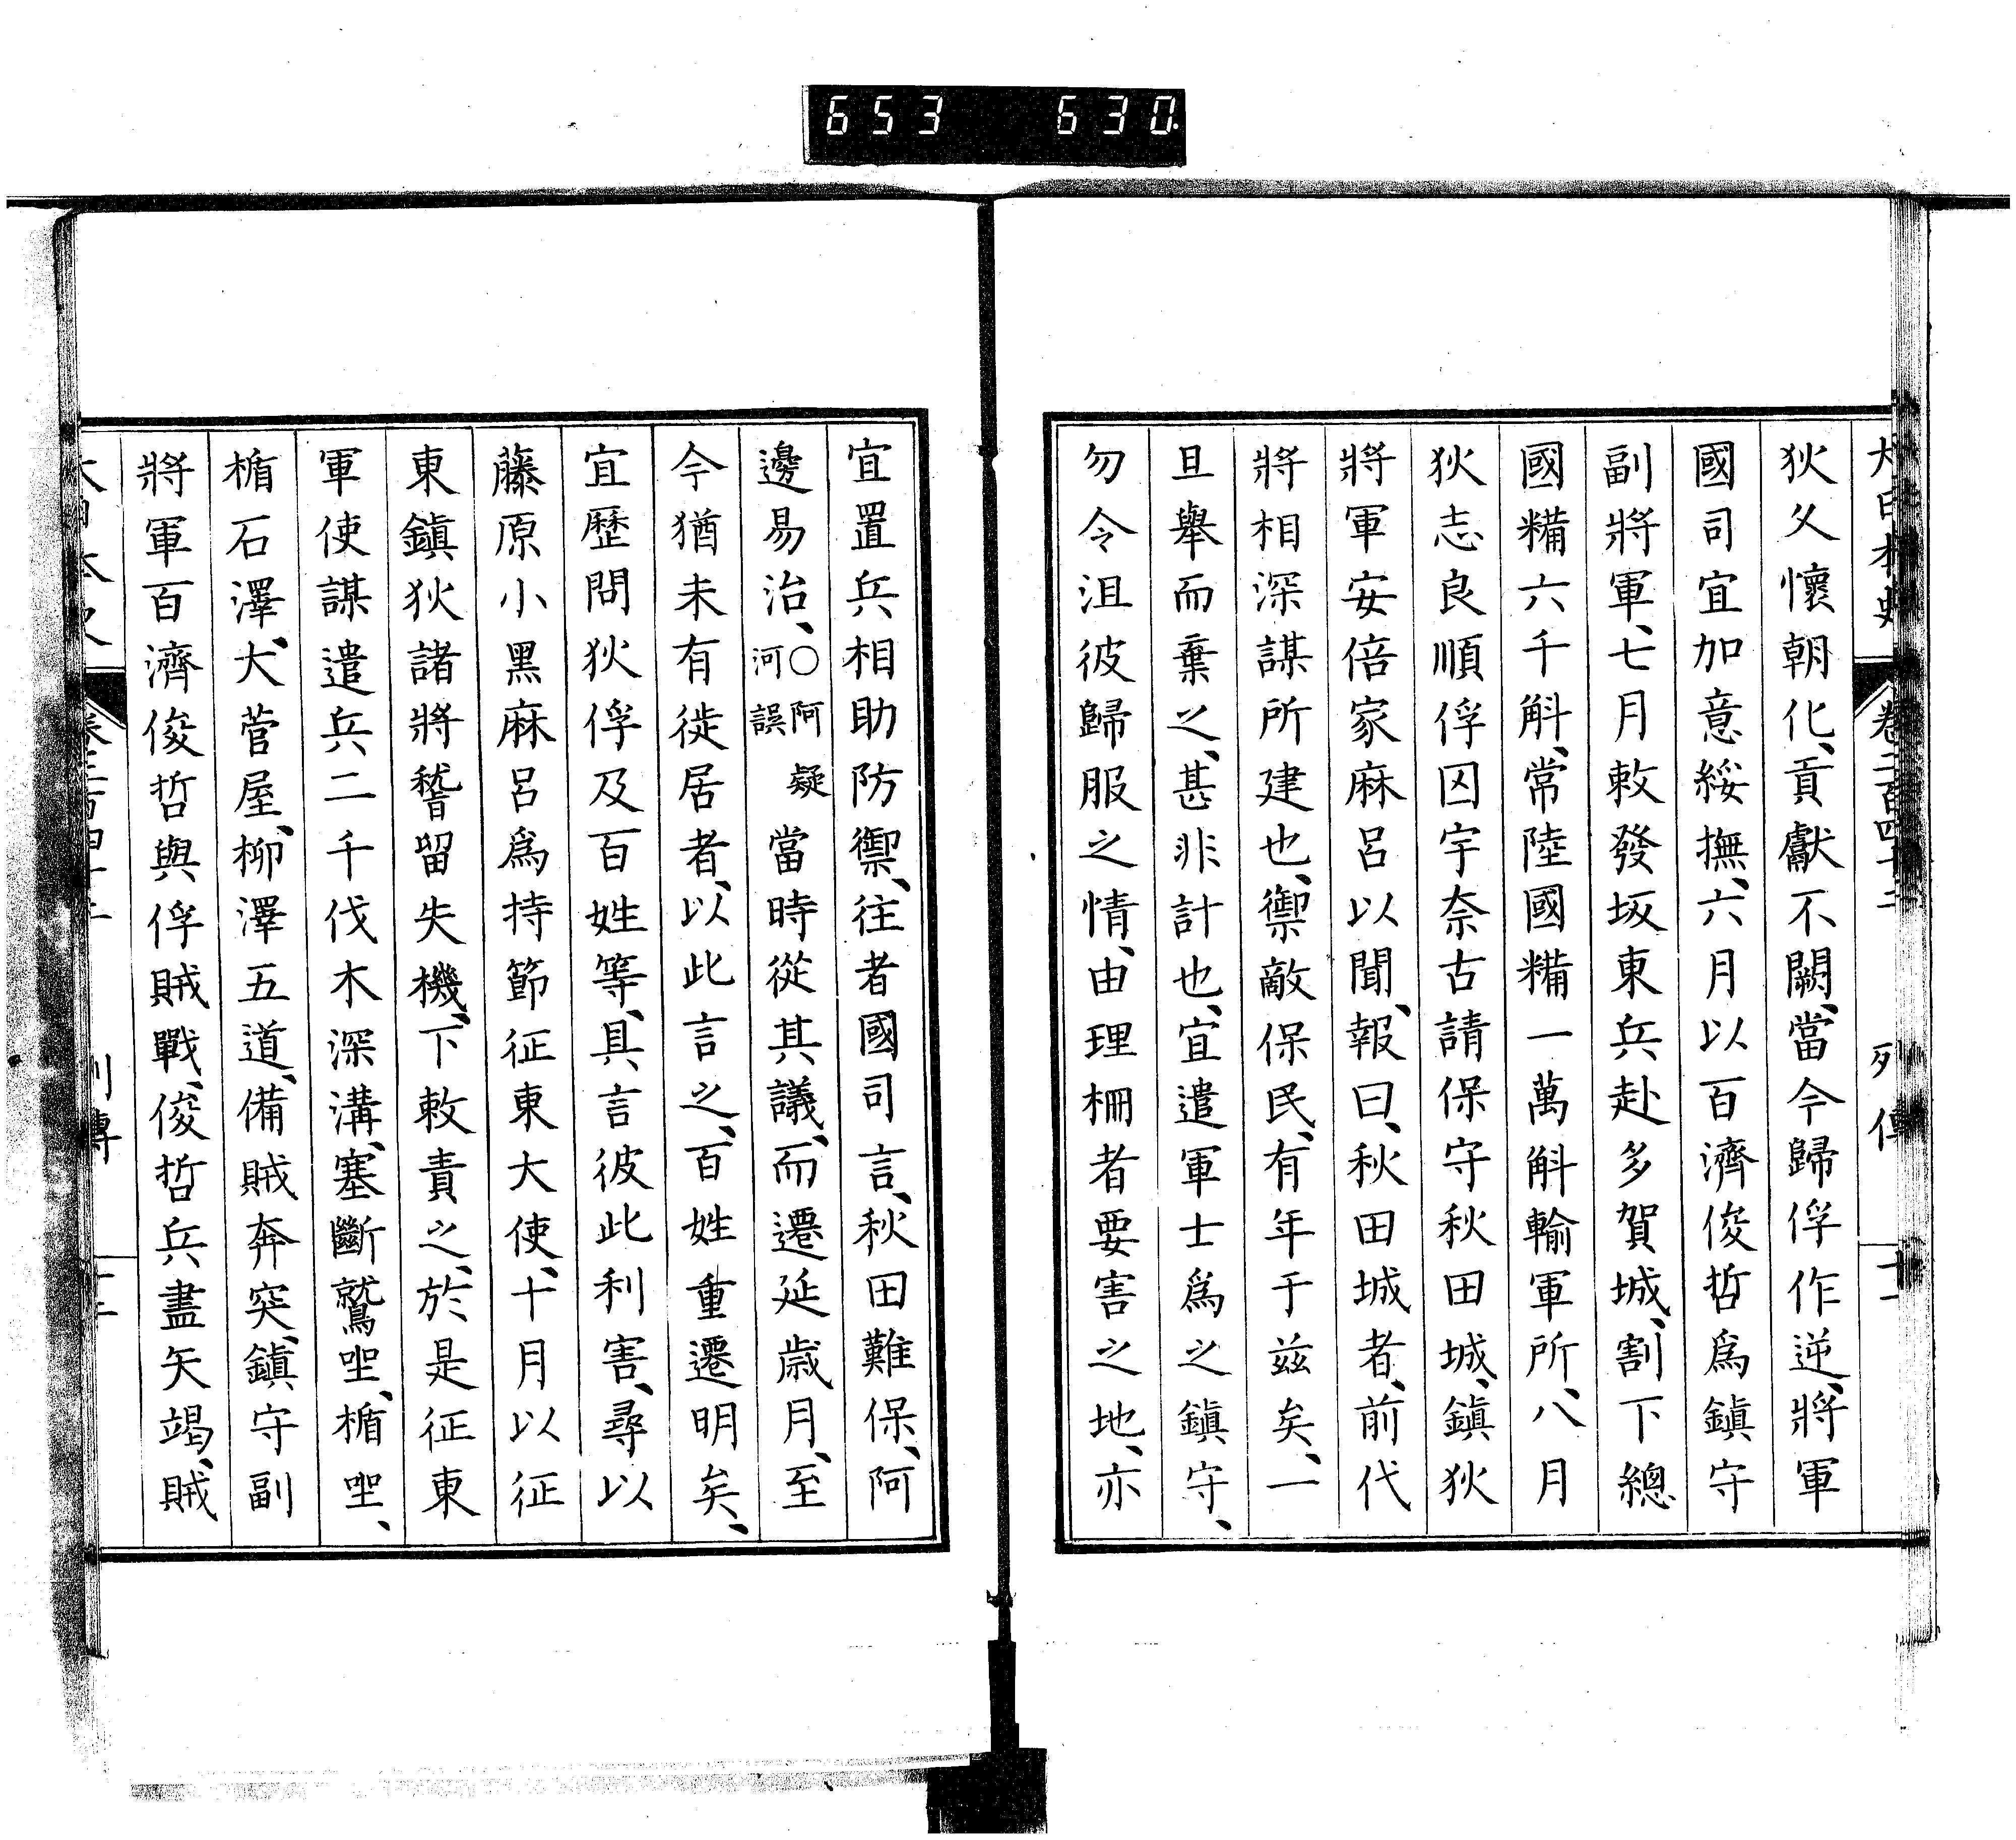 653 630
狄久懷朝化、貢獻不闕、當今歸俘作逆、將軍
國司宜加意綏撫、六月以百濟俊哲爲鎭守
副將軍、七月敕發坂東兵赴多賀城、割下總
國糒六千斛、常陸國糒一萬斛輸軍所、八月
狄志良順俘囚宇奈古請保守秋田城、鎭狄
將軍安倍家麻呂以聞、報曰、秋田城者、前代
將相深謀所建也、禦敵保民、有年于兹矣、一
旦舉而棄之、甚非計也、宜遣軍士爲之鎭守、
勿令沮彼歸服之情、由理柵者要害之地、亦
宜置兵相助防禦、往者國司言、秋田難保、阿
邊易治、〇阿疑河誤當時從其議、而遷延歳月、至
今猶未有徙居者、以此言之、百姓重遷明矣、
宜歷問狄俘及百姓等、具言彼此利害、尋以
藤原小黑麻呂爲持節征東大使、十月以征
東鎭狄諸將稽留失機、下敕責之、於是征東
軍使謀遣兵二千伐木深溝、塞斷鷲坐、楯坐、
楯石澤、大菅屋、柳澤五道、備賊奔突、鎭守副
將軍百濟俊哲與俘賊戰、俊哲兵盡矢竭、賊